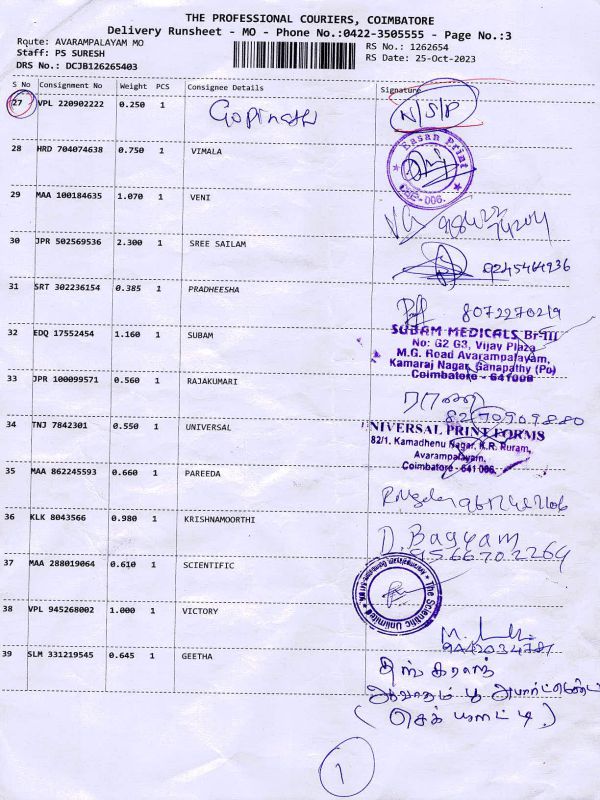 THE PROFESSIONAL COURIERS, COIMBATORE
Delivery Runsheet - MO - Phone No.:0422-3505555 - Page No.:3
Route: AVARAMPALAYAM MO
RS No.: 1262654
Staff: PS SURESH
RS Date: 25-Oct-2023
DRS No.: DCJB126265403
S No Consignment No Weight PCS Consignee Details Signature
27 VPL 220902222 0.250 1 Gopinath N/S/P
28 HRD 704074638 0.750 1 VIMALA
Easan Print
CBE-006.
29 MAA 100184635 1.070 1 VENI
30 JPR 502569536 2.300 1 SREE SAILAM
9245464936
31 SRT 302236154 0.385 1 PRADHEESHA
8072270219
32 EDQ 17552454 1.160 1 SUBAM
SUBAM MEDICALS Br-III
No: G2 G3, Vijay Plaza
M.G. Road Avarampalayam,
Kamaraj Nagar, Ganapathy (Po)
Coimbatore - 641006
33 JPR 100099571 0.560 1 RAJAKUMARI
34 TNJ 7842301 0.550 1 UNIVERSAL
NIVERSAL PRINT FORMS
82/1. Kamadhenu Nagar, K.R. Puram,
Avarampalayam,
Coimbatore - 641 006.
35 MAA 862245593 0.660 1 PAREEDA
36 KLK 8043566 0.980 1 KRISHNAMOORTHI
D. Bagyam
9566702264
37 MAA 288019064 0.610 1 SCIENTIFIC
The Scientific Unlimited
38 VPL 945268002 1.000 1 VICTORY
9442034781
39 SLM 331219545 0.645 1 GEETHA
(செக்யூரிட்டி)
1